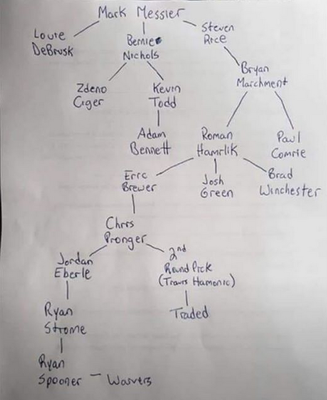 Mark Messier
Louie
DeBrusk
Bernie
Nichols
Steven
Rice
Zdeno
Ciger
Kevin
Todd
Bryan
Marchment
Adam
Bennett
Roman
Hamrlik
Paul
Comrie
Eric
Brewer
Josh
Green
Brad
Winchester
Chris
Pronger
Jordan
Eberle
2nd
Round Pick
(Travis Hamonic)
Ryan
Strome
Traded
Ryan
Spooner - Waivers